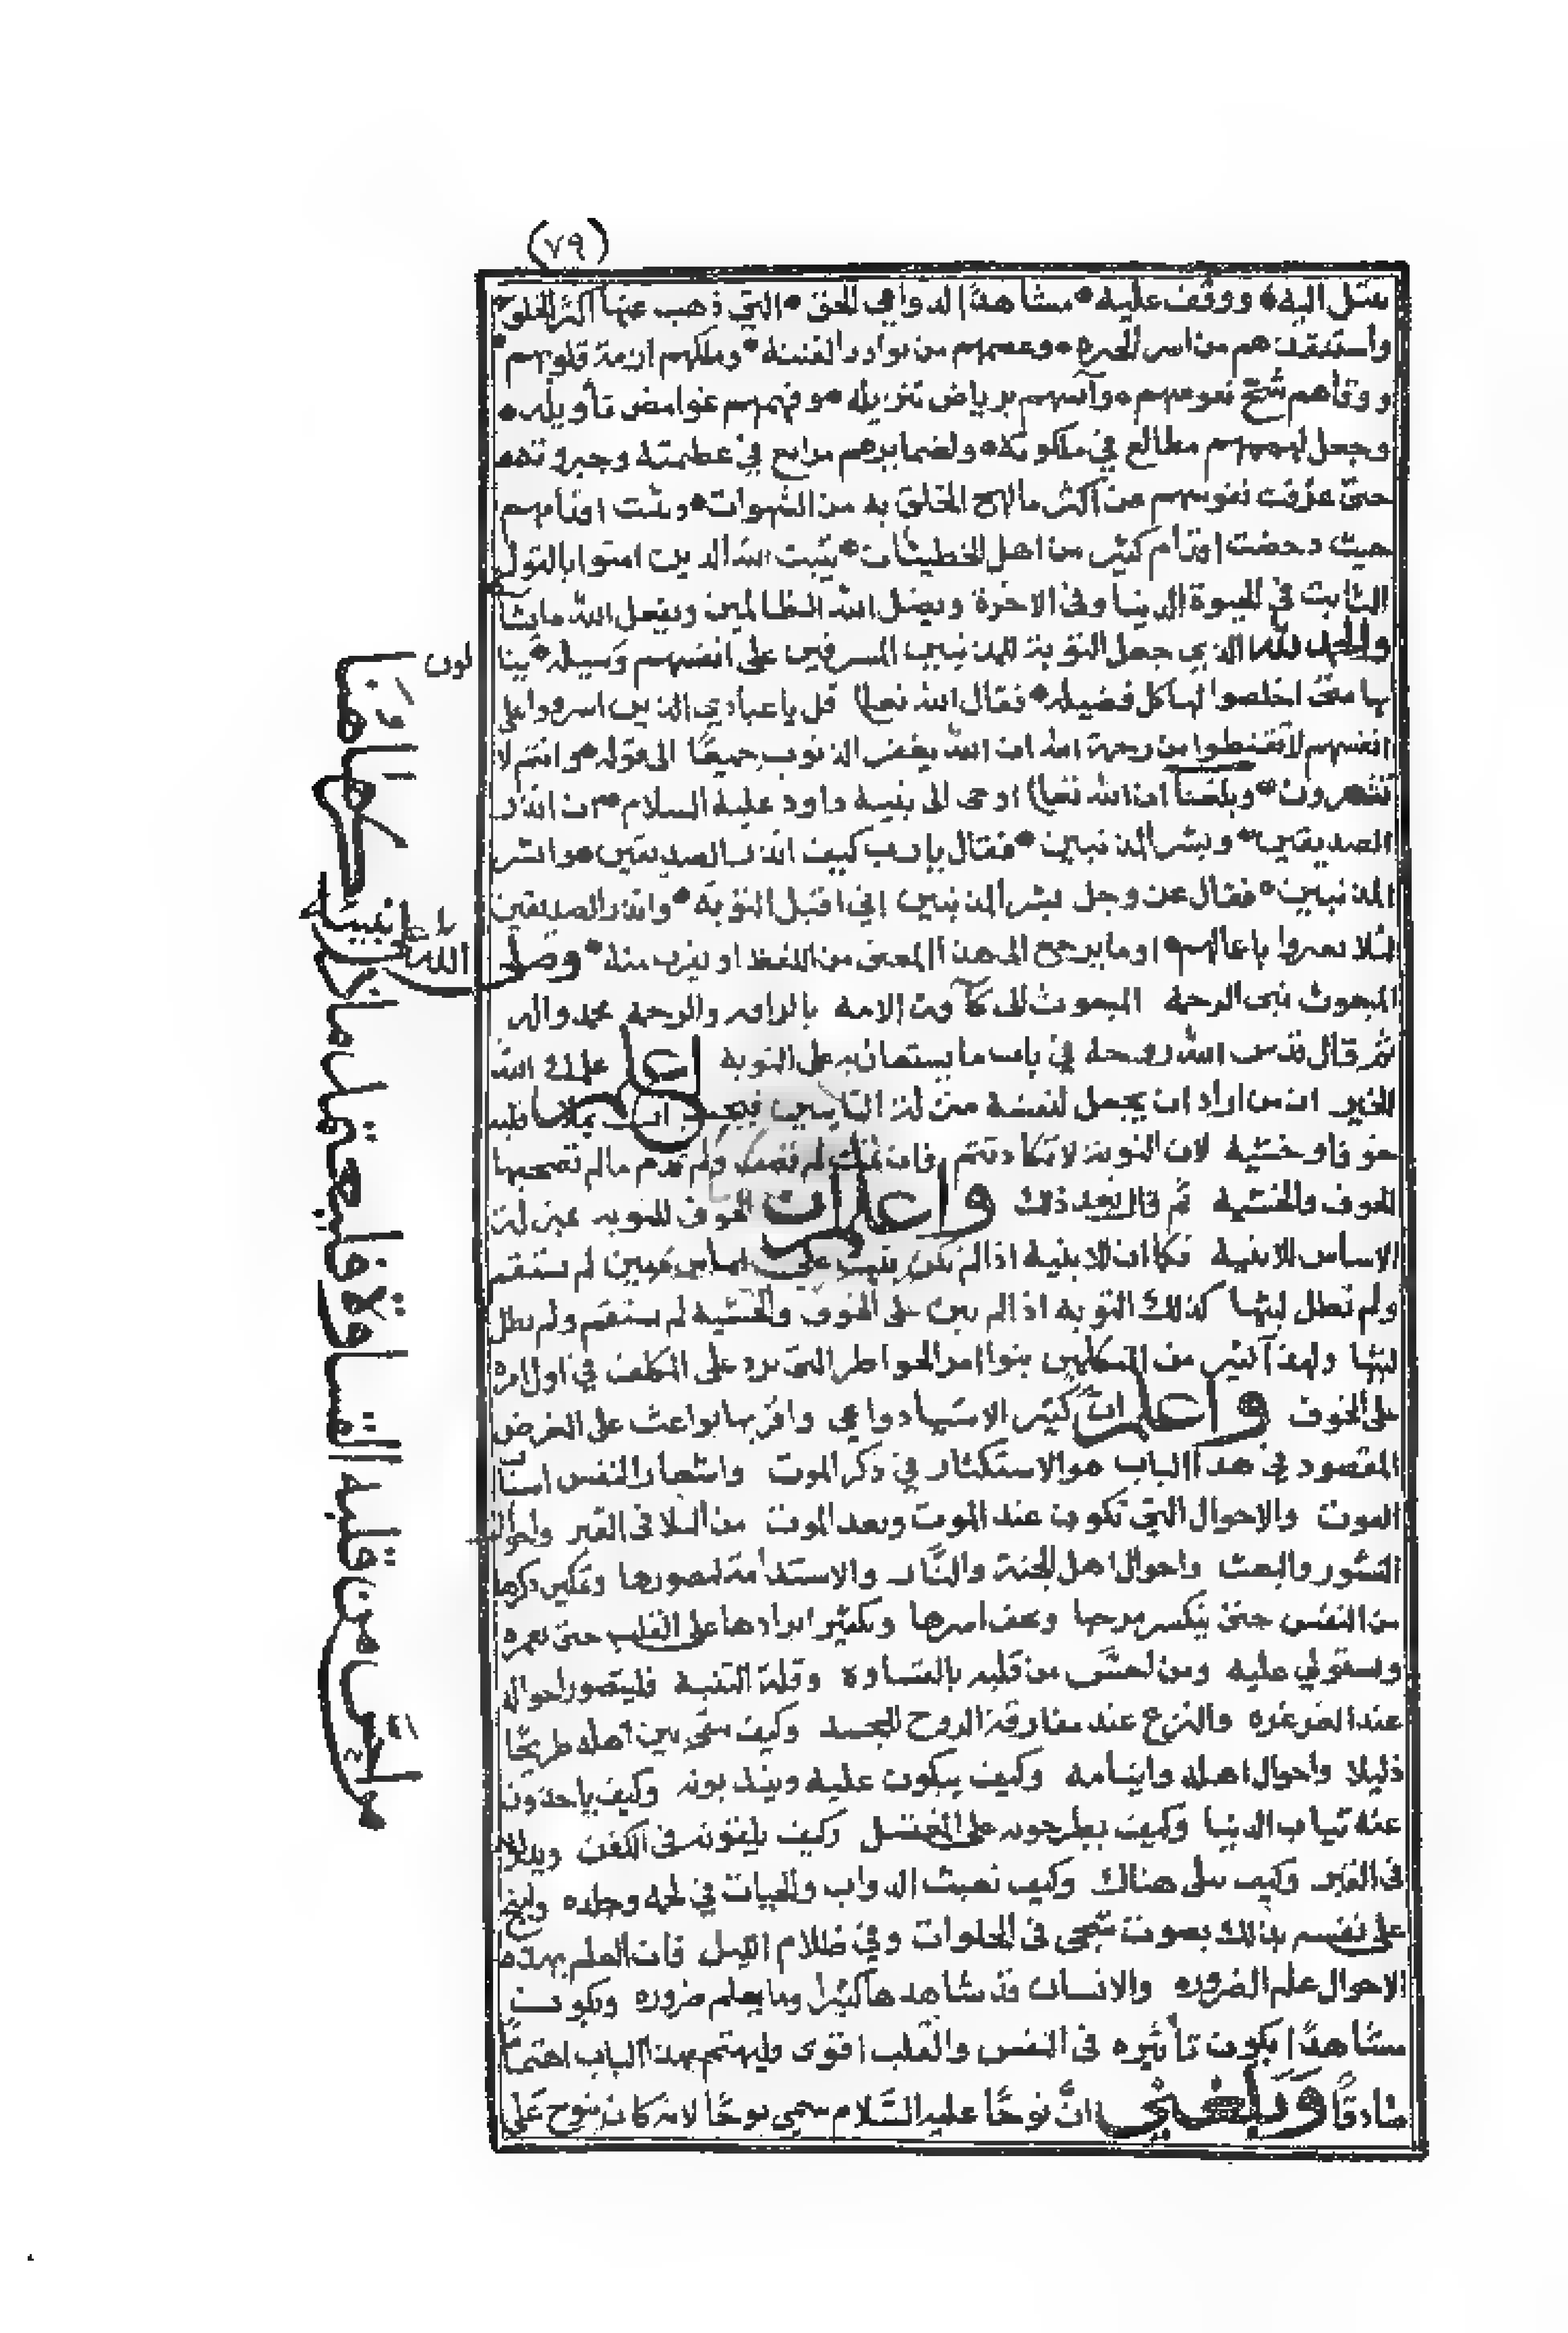 (٧٩)
اليه ووقف عليه مشاهدا الدواعي الحق التي ذهب عنها اكثر الخلق
واستنقذهم من اسر الحيرة وعصمهم من بوادر الفتنة وملكهم ازمة قلوبهم
ووقاهم شح نفوسهم وآنسهم برياض تنزيله وفهمهم غوامض تأويله
وجعل لهممهم مطالع في ملكوته ولضمايرهم مراتع في عظمته وجبروته
حتى عزفت نفوسهم عن اكثر ما لهج الخلق به من الشهوات وثبت اقدامهم
حيث دحضت اقدام كثير من اهل الخطيئات يثبت الله الذين امنوا بالقول
الثابت في الحيوة الدنيا وفى الاخرة ويضل الله الظالمين ويفعل الله ما يشا
والحمد لله الذي جعل التوبة للمذنبين المسرفين على انفسهم وسيلة ينا لون
بها متى اخلصوا لها كل فضيلة فقال الله تعالى قل ياعبادي الذين اسرفوا على
انفسهم لا تقنطوا من رحمة الله ان الله يغفر الذنوب جميعا الى قوله وانتم لا
تشعرون وبلغنا ان الله تعالى اوحى الى نبيه داود عليه السلام ان انذر
الصديقين وبشر المذنبين فقال يارب كيف انذر الصديقين وابشر
المذنبين فقال عز وجل بشر المذنبين اني اقبل التوبة وانذر الصديقين
لئلا يغتروا باعمالهم او ما يرجع الى هذا المعنى من اللفظ او يقرب منه وصلى الله على
المبعوث نبى الرحمة المبعوث الى كآفة الامة بالرافه والرحمة محمد واله
ثم قال قدس الله روحه في باب ما يستعان به على التوبة اعلم علمك الله
الخير ان من اراد ان يجعل لنفسه من التايبين فيجب ان يملا قلبه
خوفا وخشية لان التوبة لا تكاد تتم فان تمت لم تصف ولم تدم ما لم تصحبها
الخوف والخشية ثم قال بعد ذلك واعلم ان الخوف للتوبه بمنزلة
الاساس للابنية فكما ان الابنية اذا لم تكن بنيت على اساس مكين لم تستقم
ولم تطل لبثها كذلك التوبه اذا لم تبن على الخوف والخشيه لم تستقم ولم تطل
لبثها ولهذا كثير من المتكلمين بنوا امر الخواطر التي ترد على المكلف في اول امره
على الخوف واعلم ان كثير الاسباب دواعي واقربها بواعث على الغرض
المقصود في هذا الباب هو الاستكثار في ذكر الموت واشعار النفس
الموت والاحوال التي تكون عند الموت وبعد الموت من البلا فى القبر واحوال
النشور والبعث واحوال اهل الجنة والنار والاستدامة لتصورها وتمكين ذكرها
من النفس حتى ينكسر مرحها ويخف اسرها ويكثر ايرادها على القلب حتى تغمره
وتستولي عليه ومن احس من قلبه بالقساوة وقلة التنبه فليتصور احواله
عند الغرغره والنزع عند مفارقة الروح للجسد وكيف سجى بين اهله طريحا
ذليلا واحوال اهله وايتامه وكيف يبكون عليه ويندبونه وكيف ياخذون
عنه ثياب الدنيا وكيف يطرحونه على المغتسل وكيف يلفونه فى الكفن
فى القبر وكيف هناك وكيف تعبث الدواب والحيات في لحمه وجلده
على نفسه بذلك بصوت شجى فى الخلوات وفي ظلام الليل فان العلم بهذه
الاحوال علم الضروره والانسان قد شاهدها كثيرا وما يعلم ضروره ويكون
مشاهدا يكون تأثيره فى النفس والقلب اقوى وليهتم بهذا الباب اهتماما
صادقا وبلغني ان نوحا عليه السلام سمي نوحا لانه كان ينوح على
ومن احس من قلبه القساوة فليعقل ما